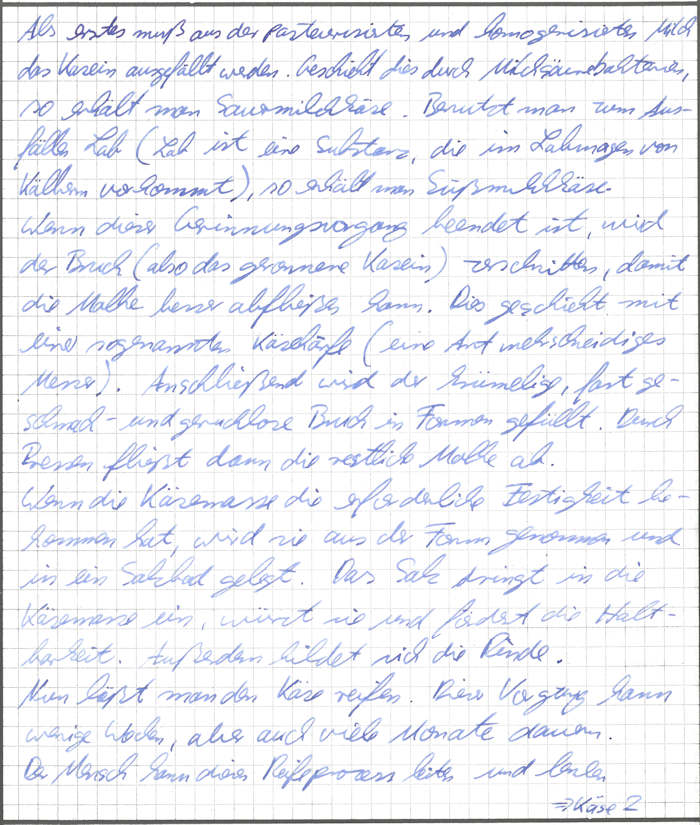 Als erstes muß aus der pasteurisierten und homogenisierten Milch
das Kasein ausgefällt werden. Geschieht dies durch Milchsäurebakterien,
so erhält man Sauermilchkäse. Benutzt man zum Aus-
fällen Lab (Lab ist eine Substanz, die im Labmagen von
Kälbern vorkommt), so erhält man Süßmilchkäse.
Wenn dieser Gerinnungsvorgang beendet ist, wird
der Bruch (also das geronnene Kasein) zerschnitten, damit
die Molke besser abfließen kann. Dies geschieht mit
einer sogenannten Käseharfe (eine Art mehrschneidiges
Messer). Anschließend wird der krümelige, fast ge-
schmack- und geruchlose Bruch in Formen gefüllt. Durch
Pressen fließt dann die restliche Molke ab.
Wenn die Käsemasse die erforderliche Festigkeit be-
kommen hat, wird sie aus der Form genommen und
in ein Salzbad gelegt. Das Salz dringt in die
Käsemasse ein, würzt sie und fördert die Halt-
barkeit. Außerdem bildet sich die Rinde.
Nun läßt man den Käse reifen. Dieser Vorgang kann
wenige Wochen, aber auch viele Monate dauern.
Der Mensch kann diesen Reifeprozess leiten und lenken
⇒ Käse 2